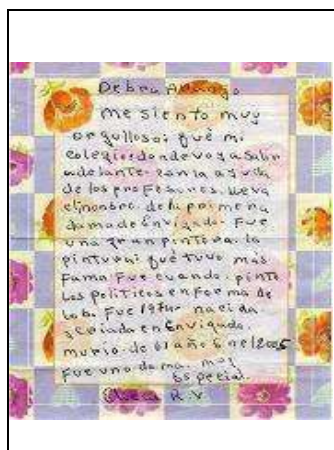 Debra Arango
me siento muy
orgulloso: que mi
colegio donde voy a salir
adelante. con la ayuda
de los profesores. lleva
el nombre. de la primera
dama de Envigado. Fue
una gran pintora. la
pintura: que tuvo mas
Fama Fue cuando. pinto
los politicos en Forma de
lobo. Fue nacida
y criada en Envigado.
murio. de año 2005
Fue una dama. muy
Especial.
R.V.